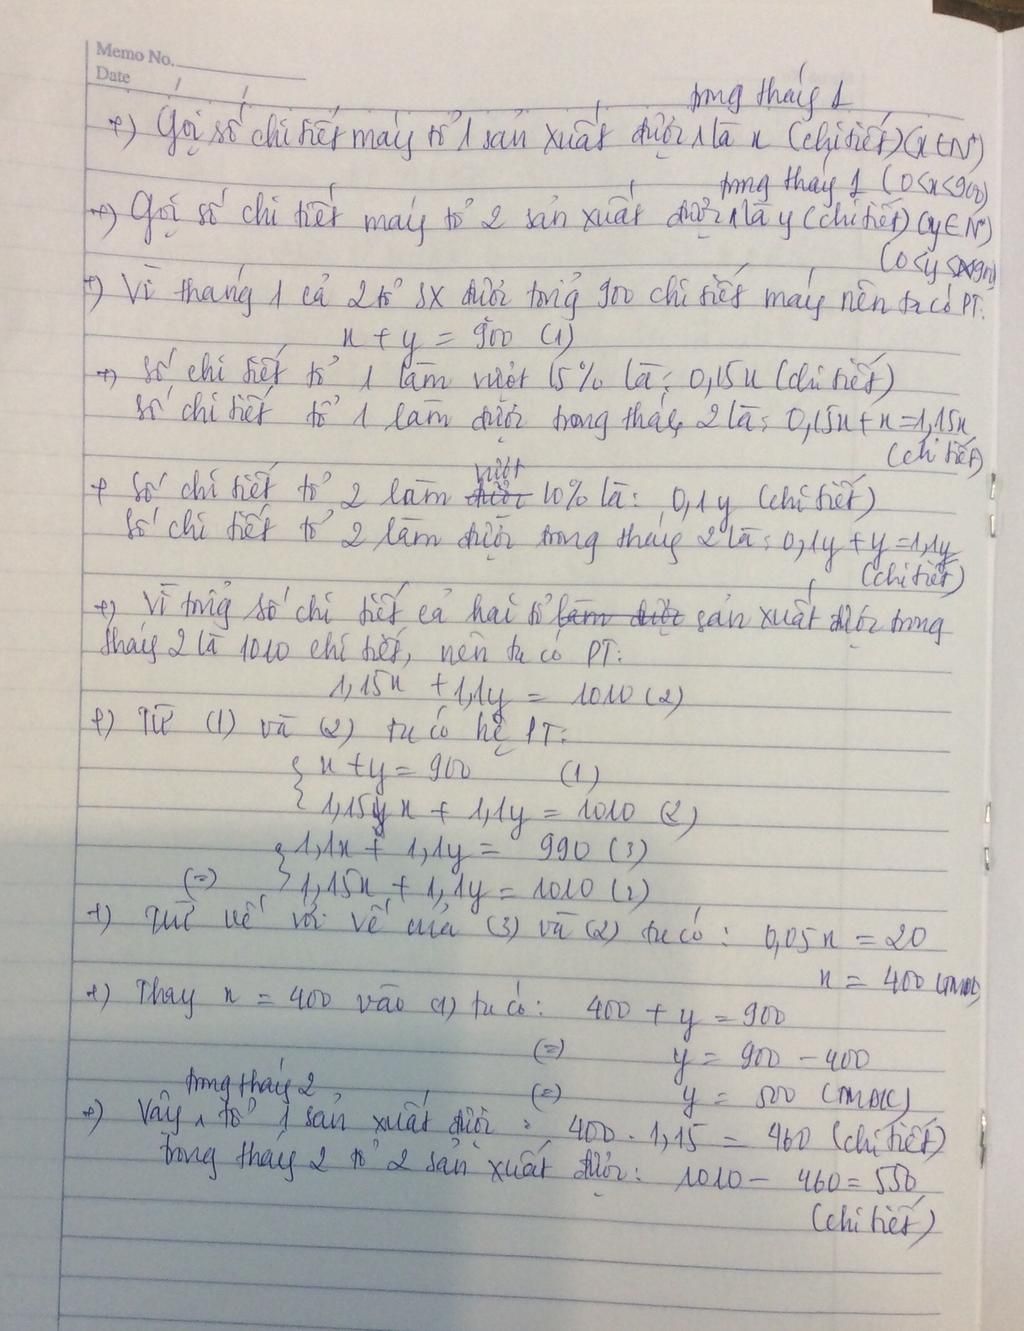 Memo No.
Date / /
trong tháng 1
+) Gọi số chi tiết máy tổ 1 sản xuất được là x (chi tiết) (x∈N*)
trong tháng 1 (0<x<900)
+) Gọi số chi tiết máy tổ 2 sản xuất được là y (chi tiết) (y∈N*)
(0<y<900)
+) Vì tháng 1 cả 2 tổ SX được tổng 900 chi tiết máy nên ta có PT:
x + y = 900 (1)
+) Số chi tiết tổ 1 làm vượt 15% là: 0,15x (chi tiết)
Số chi tiết tổ 1 làm được trong tháng 2 là: 0,15x + x = 1,15x
(chi tiết)
vượt
+ Số chi tiết tổ 2 làm được 10% là: 0,1y (chi tiết)
Số chi tiết tổ 2 làm được trong tháng 2 là: 0,1y + y = 1,1y
(chi tiết)
+) Vì tổng số chi tiết cả hai tổ làm được sản xuất được trong
tháng 2 là 1010 chi tiết, nên ta có PT:
1,15x + 1,1y = 1010 (2)
+) Từ (1) và (2) ta có hệ PT:
{ x + y = 900 (1)
1,15x + 1,1y = 1010 (2)
{ 1,1x + 1,1y = 990 (3)
(=) 1,15x + 1,1y = 1010 (2)
+) Trừ vế với vế của (3) và (2) ta có: 0,05x = 20
x = 400 (TMĐK)
+) Thay x = 400 vào (1) ta có: 400 + y = 900
(=) y = 900 - 400
(=) y = 500 (TMĐK)
trong tháng 2
+) Vậy tổ 1 sản xuất được: 400 . 1,15 = 460 (chi tiết)
trong tháng 2 tổ 2 sản xuất được: 1010 - 460 = 550
(chi tiết)